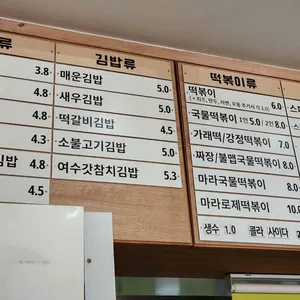 류
3.8
4.8
4.8
4.3
김밥 4.8
4.5
김밥류
매운김밥 5.0
새우김밥 5.0
떡갈비김밥 4.5
소불고기김밥 5.0
여수갓참치김밥 5.3
떡볶이류
떡볶이 6.0
(+ 치즈, 만두, 라면, 우동 추가시 각 1.0)
국물떡볶이 1인 5.0 / 2인 8.0
가래떡/강정떡볶이 7.0
짜장/불맵국물떡볶이 8.0
마라국물떡볶이 8.0
마라로제떡볶이 10.0
생수 1.0 콜라 사이다